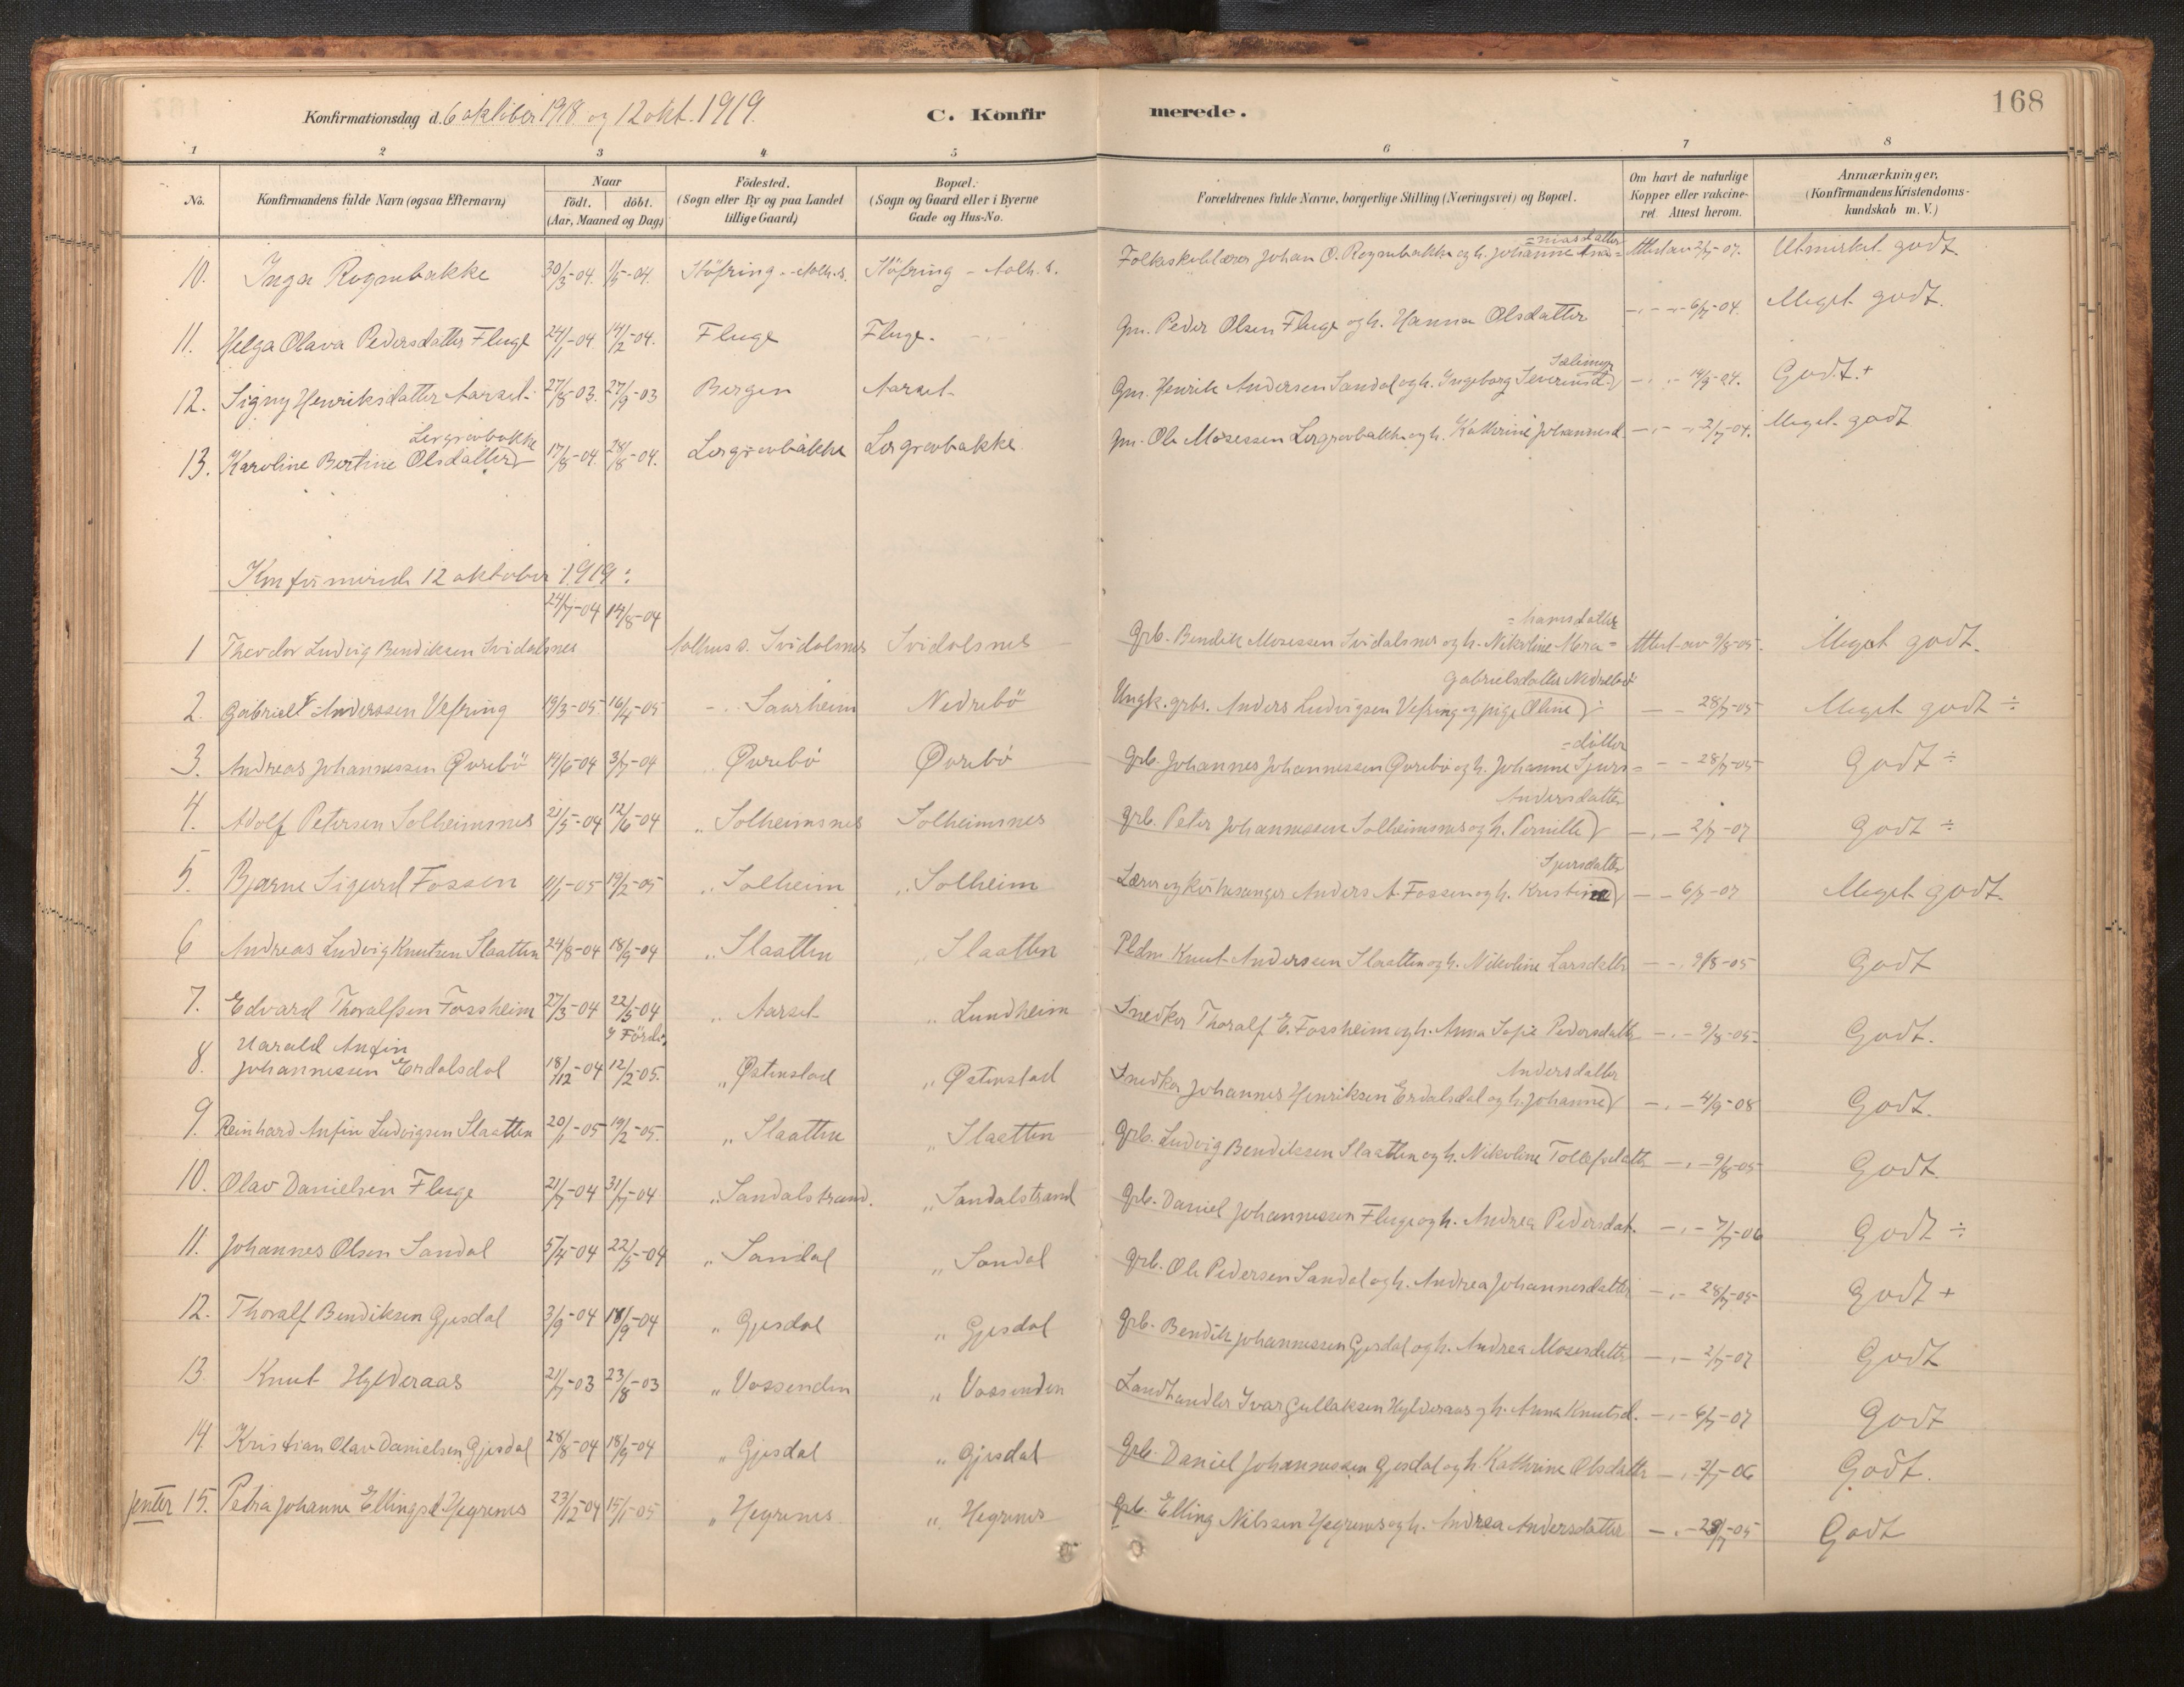 168
Konfirmationsdag d. 6 oktober 1918 og 12 okt. 1919.
C. Konfirmerede.
1 2 3 4 5 6 7 8
No.
Konfirmandens fulde Navn (ogsaa Efternavn)
Naar
födt. döbt.
(Aar, Maaned og Dag)
Födested.
(Sogn eller By og paa Landet
tillige Gaard)
Bopæl.
(Sogn og Gaard eller i Byerne
Gade og Hus-No.
Forældrenes fulde Navne, borgerlige Stilling (Næringsvei) og Bopæl.
Om havt de naturlige
Kopper eller vakcine-
ret. Attest herom.
Anmærkninger,
(Konfirmandens Kristendoms-
kundskab m. V.)
=niasdatter
10. Inga Rognebakke 30/3-04. 1/5-04. Höfring - Aolh.s. Höfring - Aolh. s. Folkeskolelærer Johan O. Rognebakke og h. Johanne Ana= Attest av 2/7-07. Utmerket godt.
11. Helga Olava Pedersdatter Fluge 24/1-04 14/2-04. Fluge Fluge. Gm. Peder Olsen Fluge og h. Hanna Olsdatter - - - 6/7-04. Meget godt.
12. Signy Henriksdatter Aarset. 27/8-03. 27/9-03 Bergen Aarset Gm. Henrik Andersen Sandal og h. Ingeborg Severinsd. - - - 14/9-04. Godt.+
Lergrovbakke
13. Karoline Bertine Olsdatter 17/8-04. 28/8-04. Lergrovbakke Lergrovbakke Gm. Ole Mosessen Lergrovbakke og h. Kathrine Johannesd. - - - 2/7-04. Meget godt
Konfirmerede 12 oktober 1919:
24/7-04 14/8-04
=hansdatter
1 Theodor Ludvig Bendiksen Svidalsnes Aolhus s. Svidalsnes Svidalsnes Grb. Bendik Mosessen Svidalsnes og h. Nikoline Mora= Attest av 9/8-05. Meget godt.
Gabrielsdatter Nedrebö
2. Gabriel Anderssen Vefring 19/3-05 16/4-05 - Saarheim Nedrebö Ungk. grbr. Anders Ludvigsen Vefring og pige Oline - - 28/7-05 Meget godt ÷
=datter
3. Andreas Johannessen Øvrebö 14/6-04 3/7-04 " Øvrebö Øvrebö Grb. Johannes Johannessen Øvrebö og h. Johanne Sjurs= - - 28/7-05 Godt ÷
Andersdatter
4. Adolf Petersen Solheimsnes 21/5-04 12/6-04 " Solheimsnes Solheimsnes Grb. Peter Johannessen Solheimsnes og h. Pernille - - 2/7-07 Godt ÷
Sjursdatter
5. Bjarne Sigurd Fossen 11/1-05 19/2-05 " Solheim " Solheim Lærer og Kirkesanger Anders A. Fossen og h. Kristine - - 6/7-07 Meget godt.
6 Andreas Ludvig Knutsen Slaatten 24/8-04 18/9-04 " Slaatten " Slaatten Pldm Knut Anderssen Slaatten og h. Nikoline Larsdatter - - 9/8-05 Godt
7. Edvard Thoralfsen Fossheim 27/3-04 22/5-04 " Aarset " Lundheim Snedker Thoralf E. Fossheim og h. Anna Sofie Pedersdatter - - 9/8-05 Godt.
Harald Anfin i Förde Andersdatter
8. Johannessen Erdalsdal 18/12-04 12/2-05. " Østenstad " Østenstad Snedker Johannes Henriksen Erdalsdal og h. Johanne - - 4/9-08 Godt.
9. Reinhard Anfin Ludvigsen Slaatten 20/1-05 19/2-05. " Slaatten " Slaatten Grb. Ludvig Bendiksen Slaatten og h. Nikoline Tollefsdatter - - 9/8-05 Godt.
10. Olav Danielsen Fluge 21/7-04 31/7-04 " Sandalstrand. " Sandalstrand Grb. Daniel Johannessen Fluge og h. Andrea Pedersdat. - - 7/7-06 Godt ÷
11. Johannes Olsen Sandal 5/4-04 22/5-04 " Sandal " Sandal Grb. Ole Pedersen Sandal og h. Andrea Johannesdatter - - 28/7-05 Godt +
12. Thoralf Bendiksen Gjesdal 3/9-04 18/9-04 " Gjesdal " Gjesdal Grb. Bendik Johannessen Gjesdal og h. Andrea Mosesdatter - - 2/7-07 Godt
13 Knut Hylderaas 21/7-03 23/8-03 " Vossenden " Vossenden Landhandler Ivar Gullaksen Hylderaas og h. Anna Knutsd. - - 6/7-07 Godt
14. Kristian Olav Danielsen Gjesdal 28/8-04 18/9-04 " Gjesdal " Gjesdal Grb. Daniel Johannessen Gjesdal og h. Kathrine Olsdatter - - 2/7-06 Godt.
Jenter 15. Petra Johanne Ellingsd. Hegrenes 23/12-04 15/1-05 " Hegrenes " Hegrenes Grb. Elling Nilssen Hegrenes og h. Andrea Andersdatter - - 28/7-05 Godt